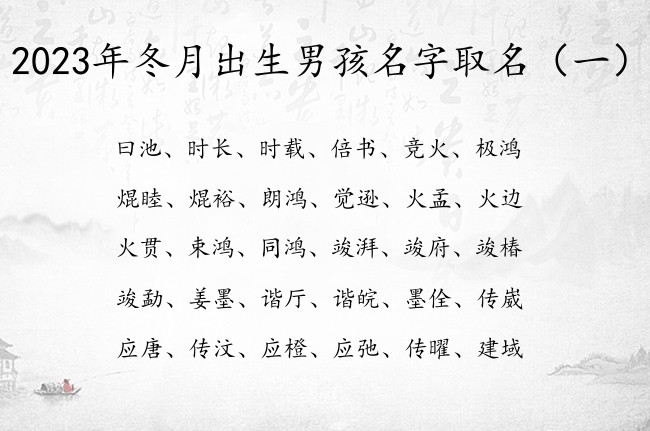 2023年冬月出生男孩名字取名（一）
曰池、时长、时载、倍书、竞火、极鸿
焜睦、焜裕、朗鸿、觉逊、火孟、火边
火贯、束鸿、同鸿、竣湃、竣府、竣椿
竣勐、姜墨、谐厅、谐皖、墨佺、传崴
应唐、传汶、应橙、应弛、传曜、建域